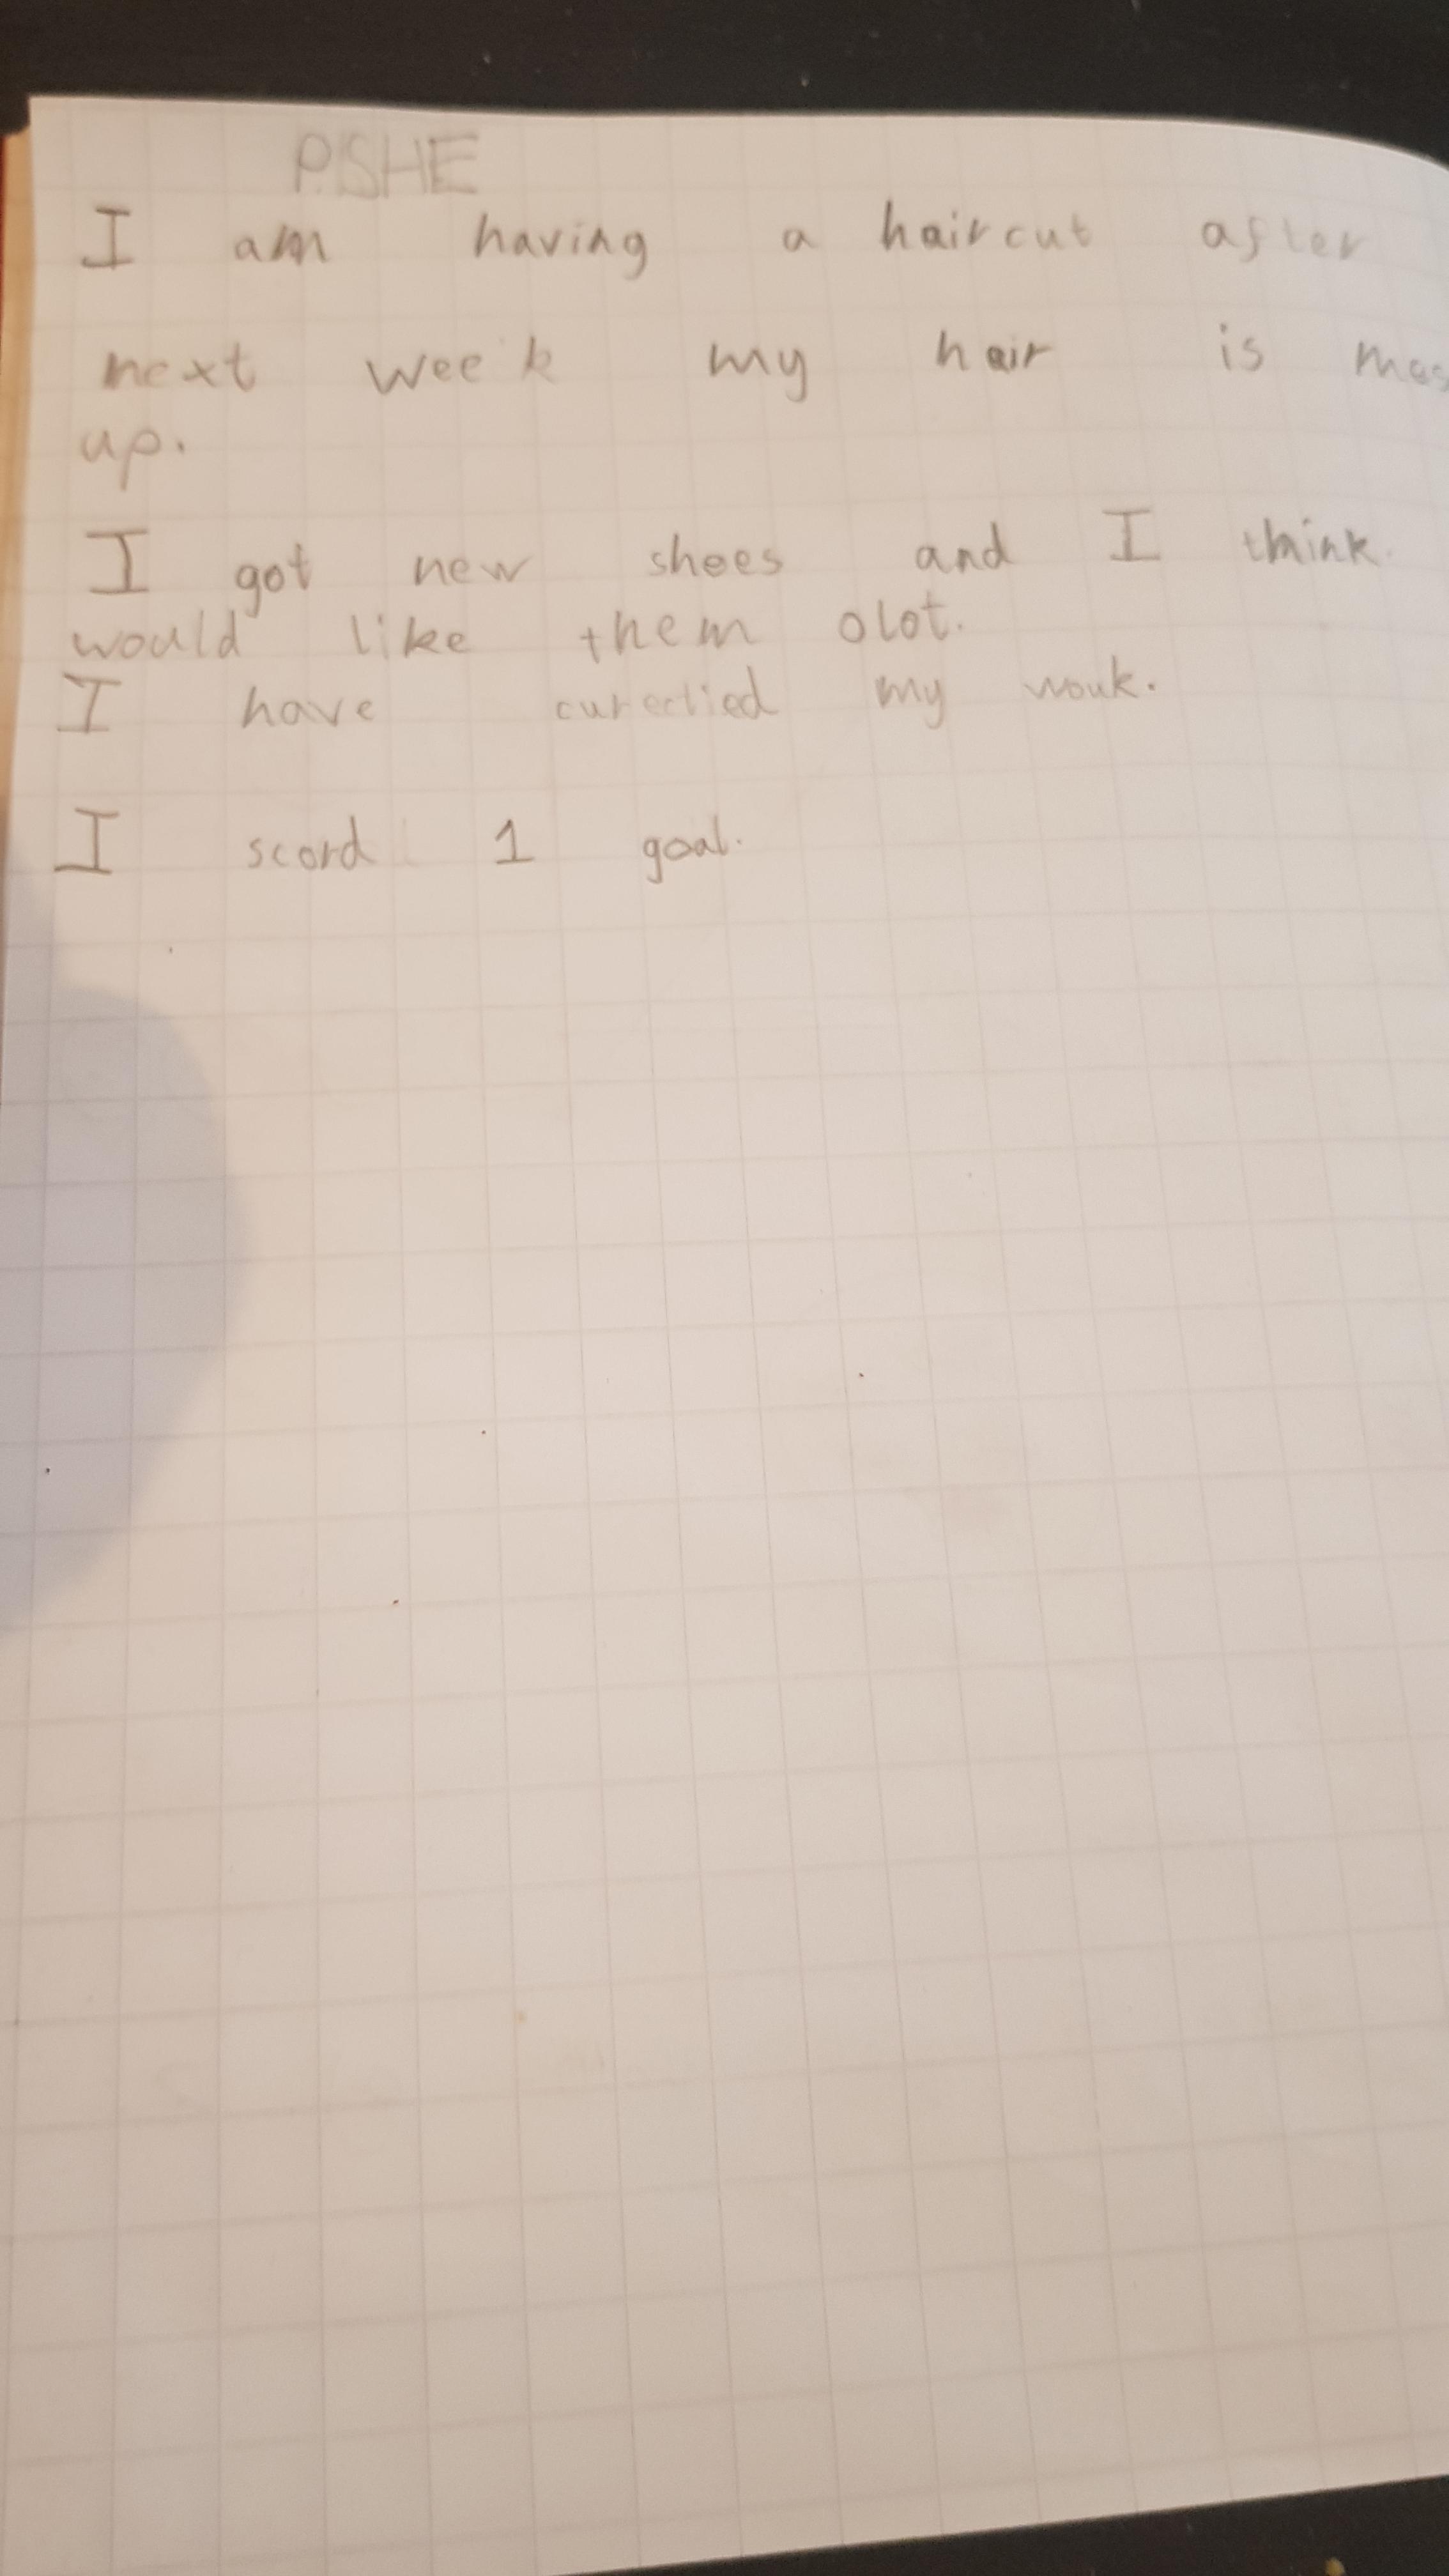 PSHE
I am having a haircut after
next week my hair is mas
up.
I got new shoes and I think
would like them alot.
I have curectied my wouk.
I scord 1 goal.